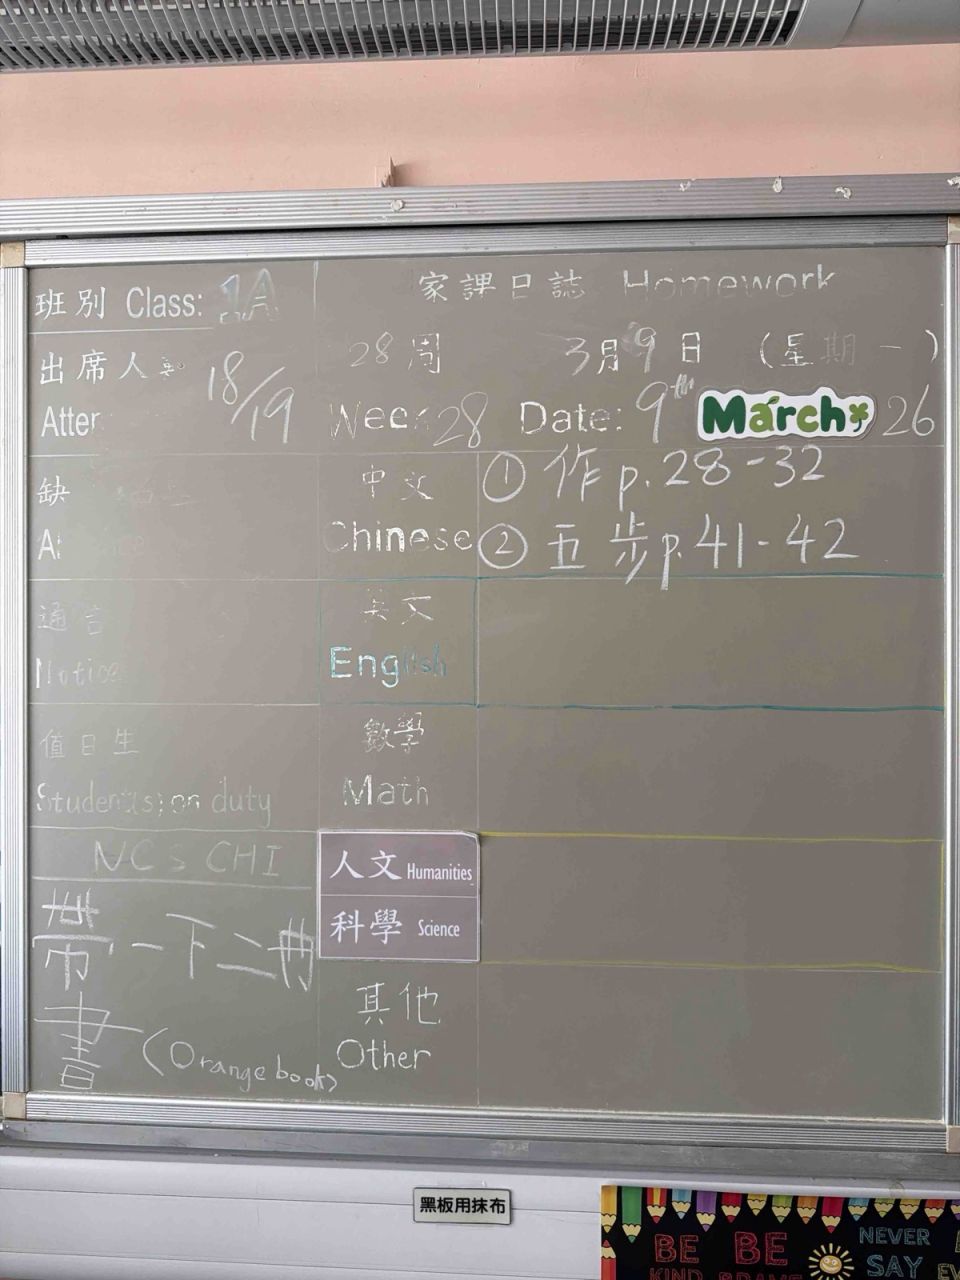 班別 Class: 1A
家課日誌 Homework
出席人
18/19
Atten
28 周 3月9日 (星期一)
Week 28 Date: 9th March 26
缺
中文
Chinese
① 作 p.28-32
② 五步 p.41-42
通告
Notice
英文
English
值日生
Student(s) on duty
數學
Math
NCS CHI
帶一下二冊
書 (Orange book)
人文 Humanities
科學 Science
其他
Other
黑板用抹布
BE KIND
BE BRAVE
NEVER
SAY